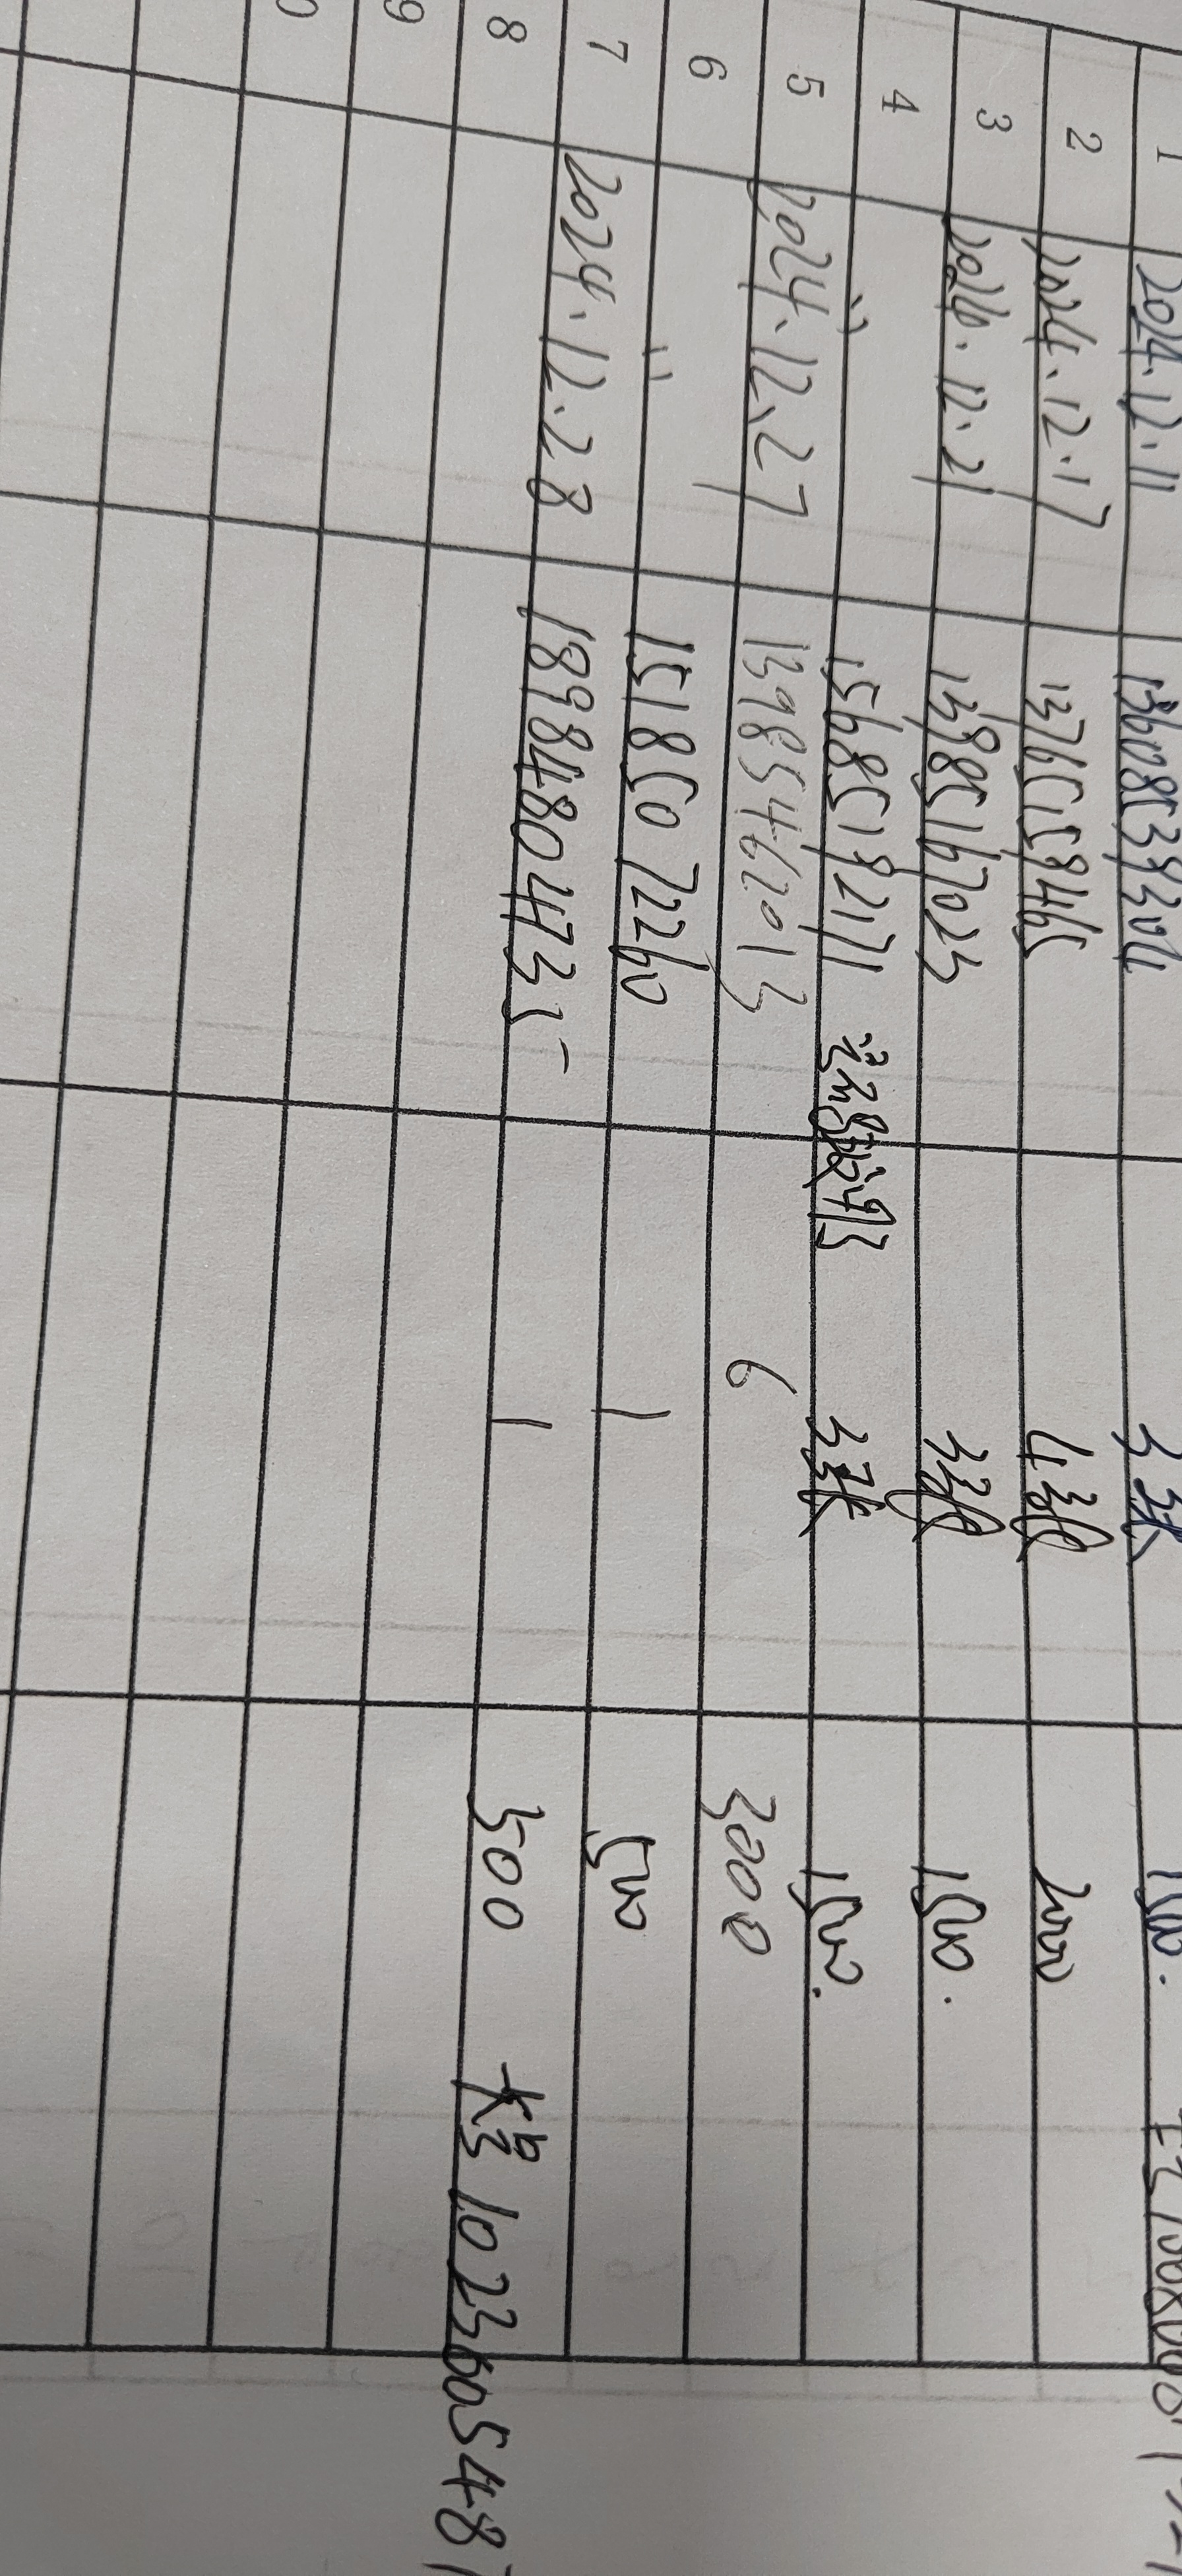 1 2024.12.11 13608539304 3张 1500.
2 2024.12.17 13765159465 4张 2000
3 2024.12.21 13985167023 3张 1500.
4 〃 15685192171 3张 1500.
5 2024.12.27 13985462013 6 3000
6 〃 15185072260 1 500
7 2024.12.28 18984804735 1 500 1023605487
8
9